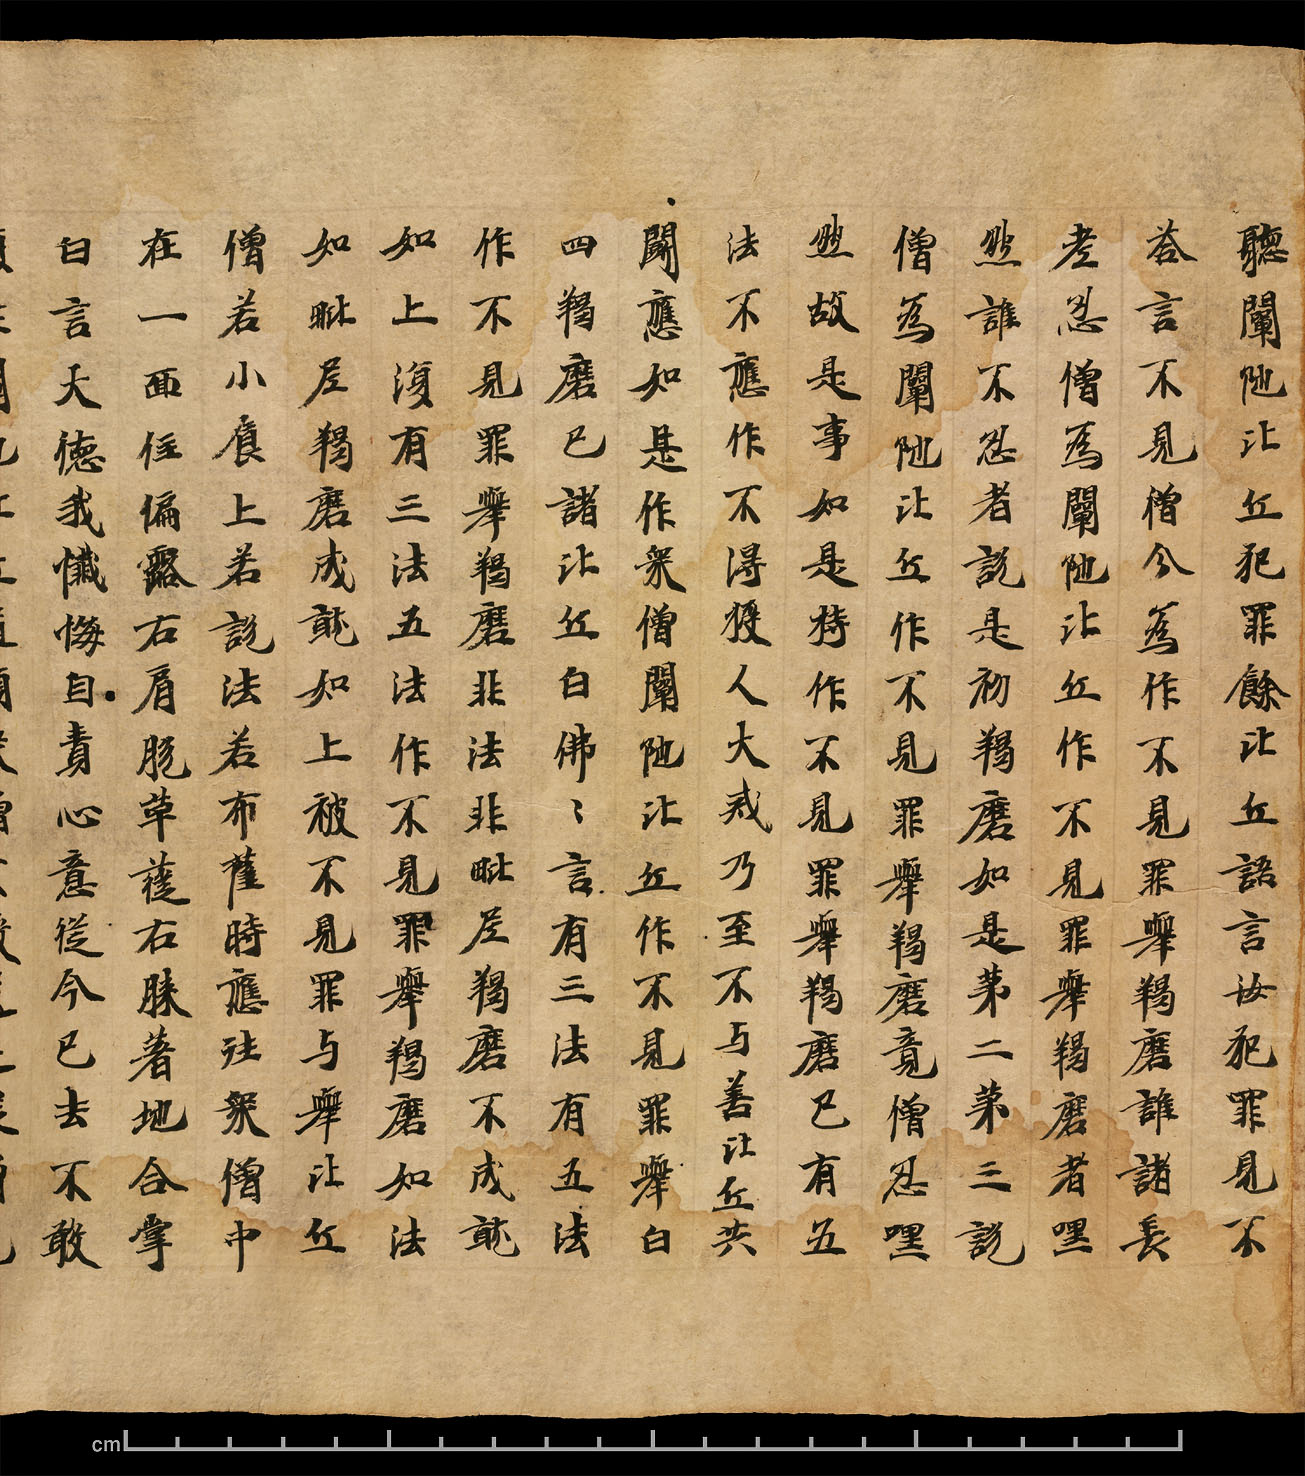 聽闡陁比丘犯罪餘比丘語言汝犯罪見不
荅言不見僧今為作不見罪舉羯磨誰諸長
老忍僧為闡陁比丘作不見罪舉羯磨者嘿
然誰不忍者說是初羯磨如是苐二苐三說
僧為闡陁比丘作不見罪舉羯磨竟僧忍嘿
然故是事如是持作不見罪舉羯磨已有五
法不應作不得授人大戒乃至不与善比丘共
鬪應如是作衆僧闡陁比丘作不見罪舉白
四羯磨已諸比丘白佛〻言有三法有五法
作不見罪舉羯磨非法非毗尼羯磨不成就
如上復有三法五法作不見罪舉羯磨如法
如毗尼羯磨成就如上被不見罪与舉比丘
僧若小食上若說法若布薩時應往衆僧中
在一面住偏露右肩脫革屣右膝著地合掌
白言大德我懺悔自責心意從今已去不敢